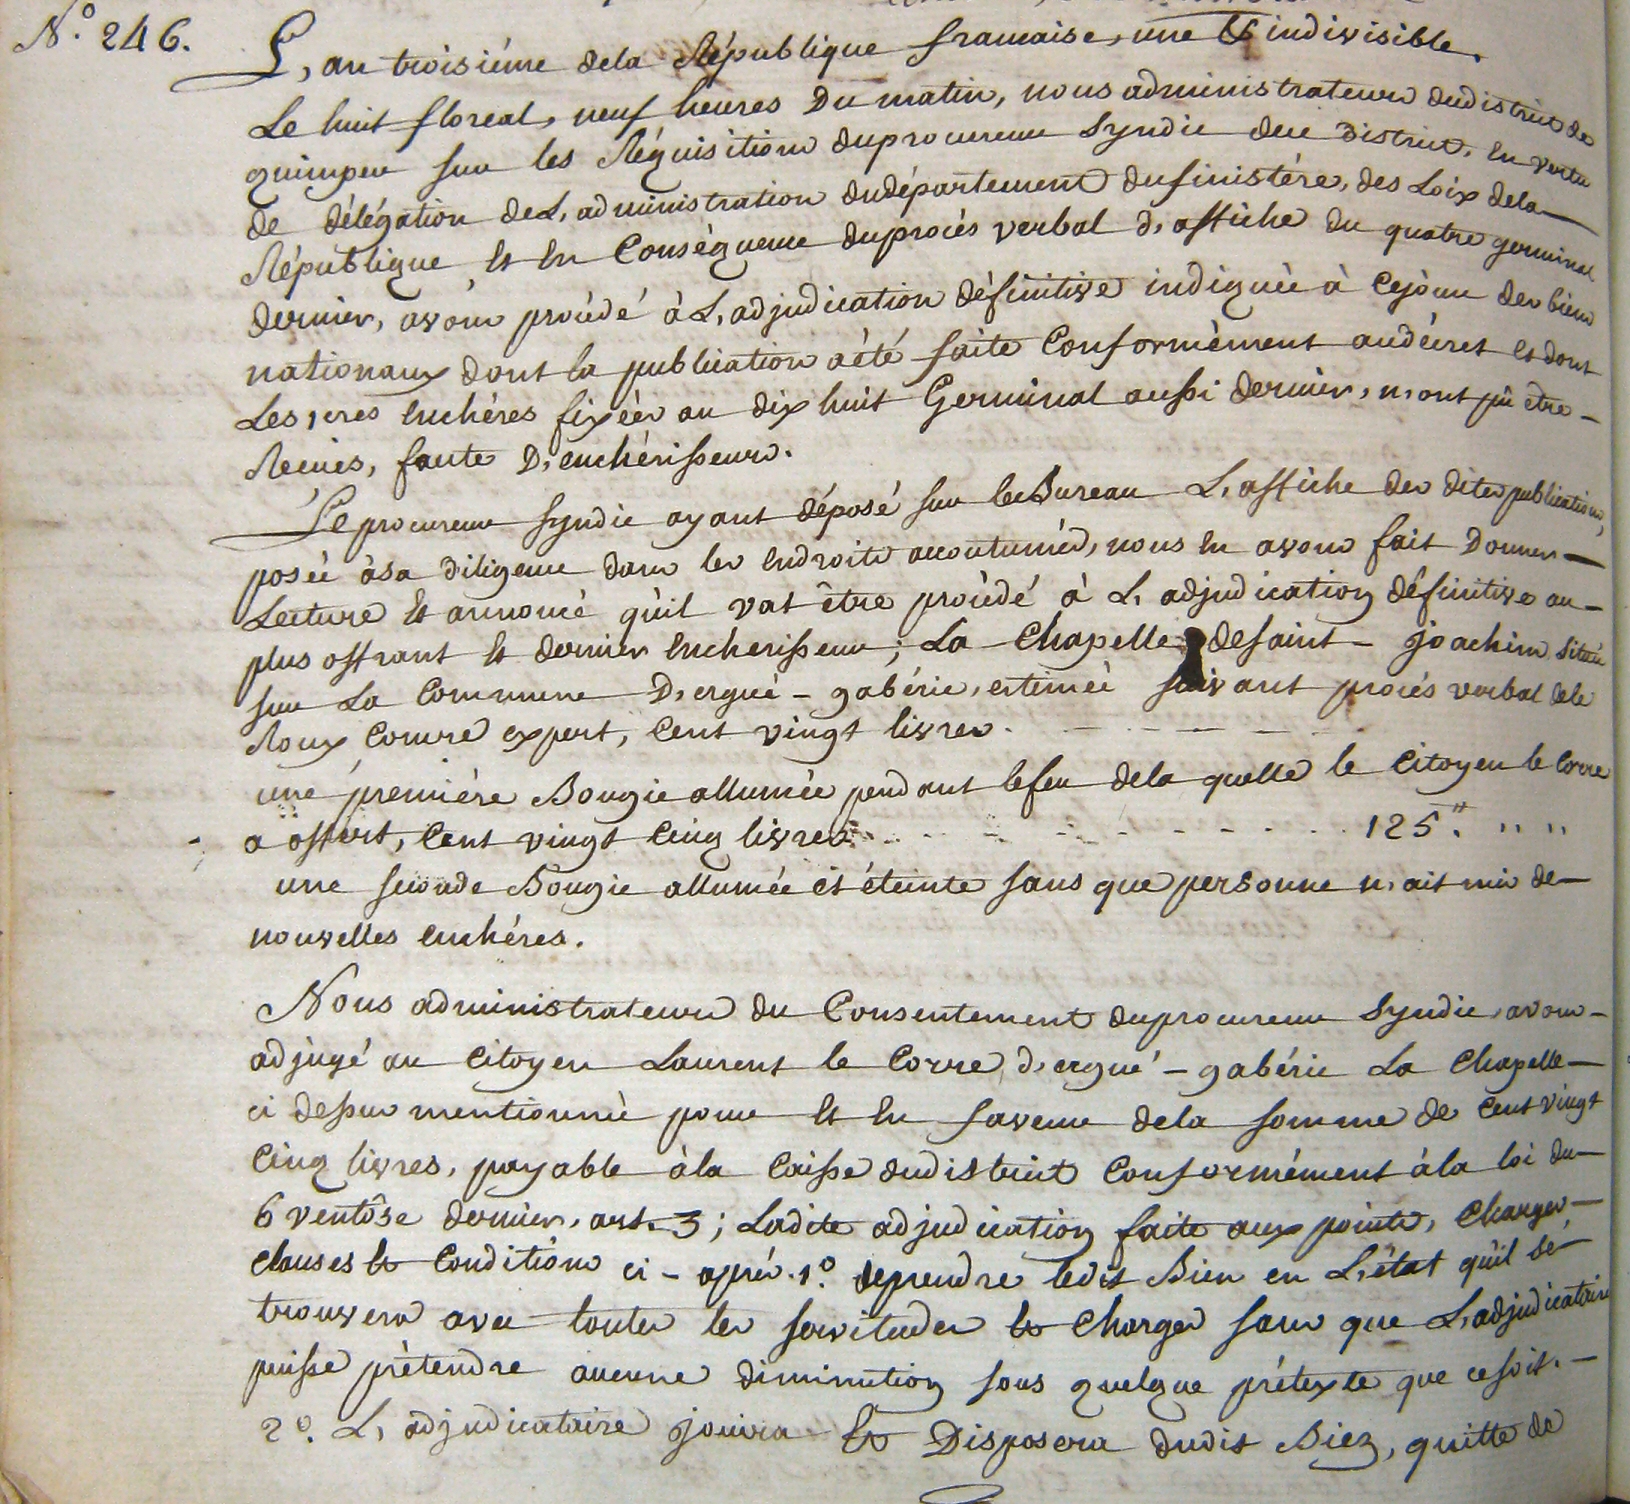 N.° 246. L, an troisiéme dela République francaise, une & indivisible.
Le huit floreal, neuf heures Du matin, nous administrateurs dudistrict de
quimper sur les Réquisitions duprocureur Syndic dece District, en vertu
de délégation deL, administration dudépartement dufinistére, des Loix dela
République, et en Conséquence duprocés verbal d, affiche du quatre germinal
dernier, avons procédé à L, adjudication définitive indiquée à cejour des biens
nationaux dont la publication aété faite Conformèment audécret et dont
Les 1eres enchéres fixées au dix huit Germinal aussi dernier, n, ont pû être
Recues, faute D, enchérisseurs.
Le procureur Syndic ayant déposé sur le Bureau L, affiche des dites publications,
posée àsa diligence dans les endroits accoutumés, nous en avons fait Donner
Lecture et annoncé qu'il vat être procédé à L, adjudication définitive au
plus offrant et dernier encherisseur; La Chapelle desaint - joachim située
sur La Commune D, ergué - gabéric, estimée suivant procés verbal dele
Roux Comme expert, Cent vingt livres.
une premiére Bougie allumée pendant lefeu dela quelle le Citoyen le Corre
a offert, Cent vingt Cinq livres . . . . . . . . 125."
une seconde Bougie allumée et éteinte sans que personne n, ait mis de
nouvelles enchéres.
Nous administrateurs du Consentement duprocureur Syndic, avons
adjugé au Citoyen Laurent le Corre, d, ergué - gabéric La Chapelle
ci dessus mentionnée pour et en faveur dela somme de Cent vingt
Cinq livres, payable àla Caisse dudistrict Conformément àla loi du
6 ventôse dernier, art. 3; Ladite adjudication faite aux points, Charges
clauses & Conditions ci - aprés. 1.° deprendre ledit Bien en L, état qu'il se
trouvera avec toutes les servitudes & Charges sans que L, adjudicataire
puisse prétendre aucune diminution sous quelque prétexte que cesoit.
2.° L, adjudicataire jouira & Disposera dudit Bien, quitte de